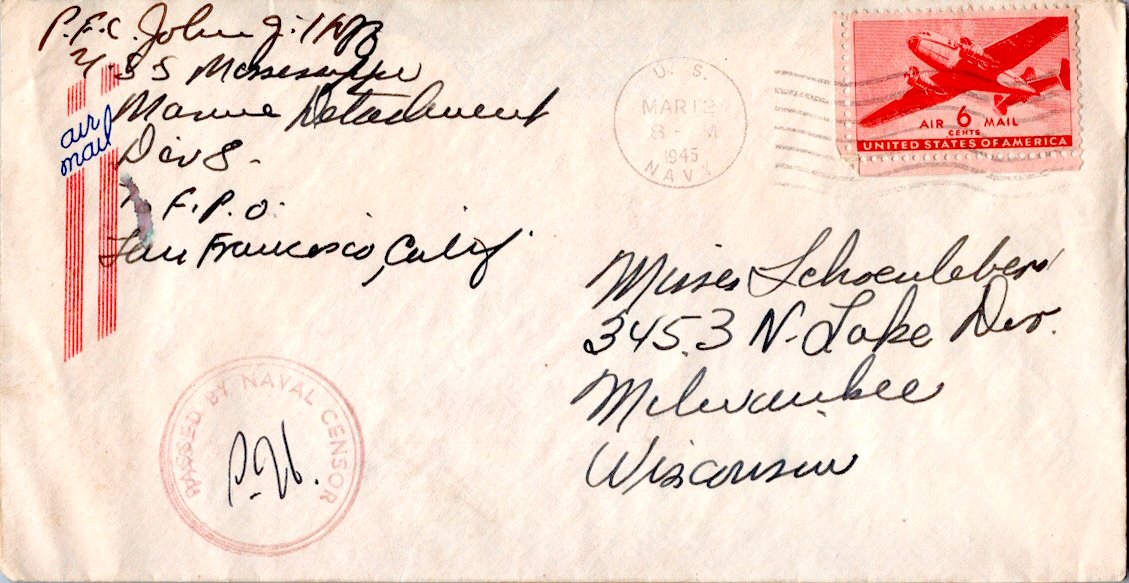 P.F.C. John J.
U.S.S Mississippi
Marine Detachment
Div 8-
F.P.O.
San Francisco, Calif
air
mail
U. S.
MAR 12
8 - M
1945
NAVY
AIR 6 MAIL
CENTS
UNITED STATES OF AMERICA
Misses Schoenleber
3453 N. Lake Dr.
Milwaukee
Wisconsin
PASSED BY NAVAL CENSOR